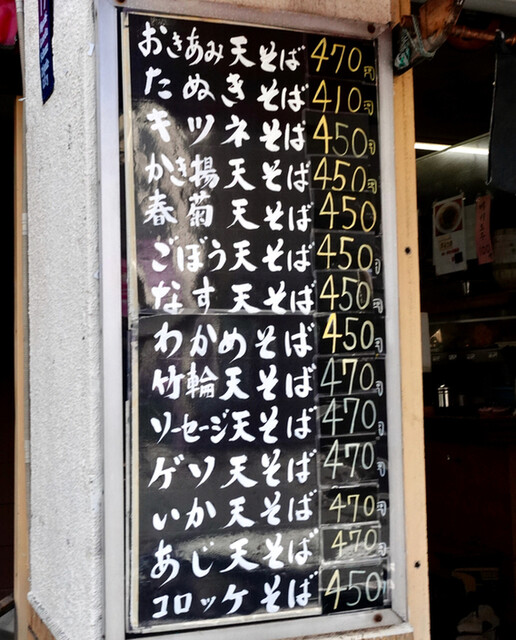 おきあみ天そば 470円
たぬきそば 410円
キツネそば 450円
かき揚天そば 450円
春菊天そば 450
ごぼう天そば 450円
なす天そば 450円
わかめそば 450円
竹輪天そば 470円
ソーセージ天そば 470円
ゲソ天そば 470円
いか天そば 470円
あじ天そば 470円
コロッケそば 450円